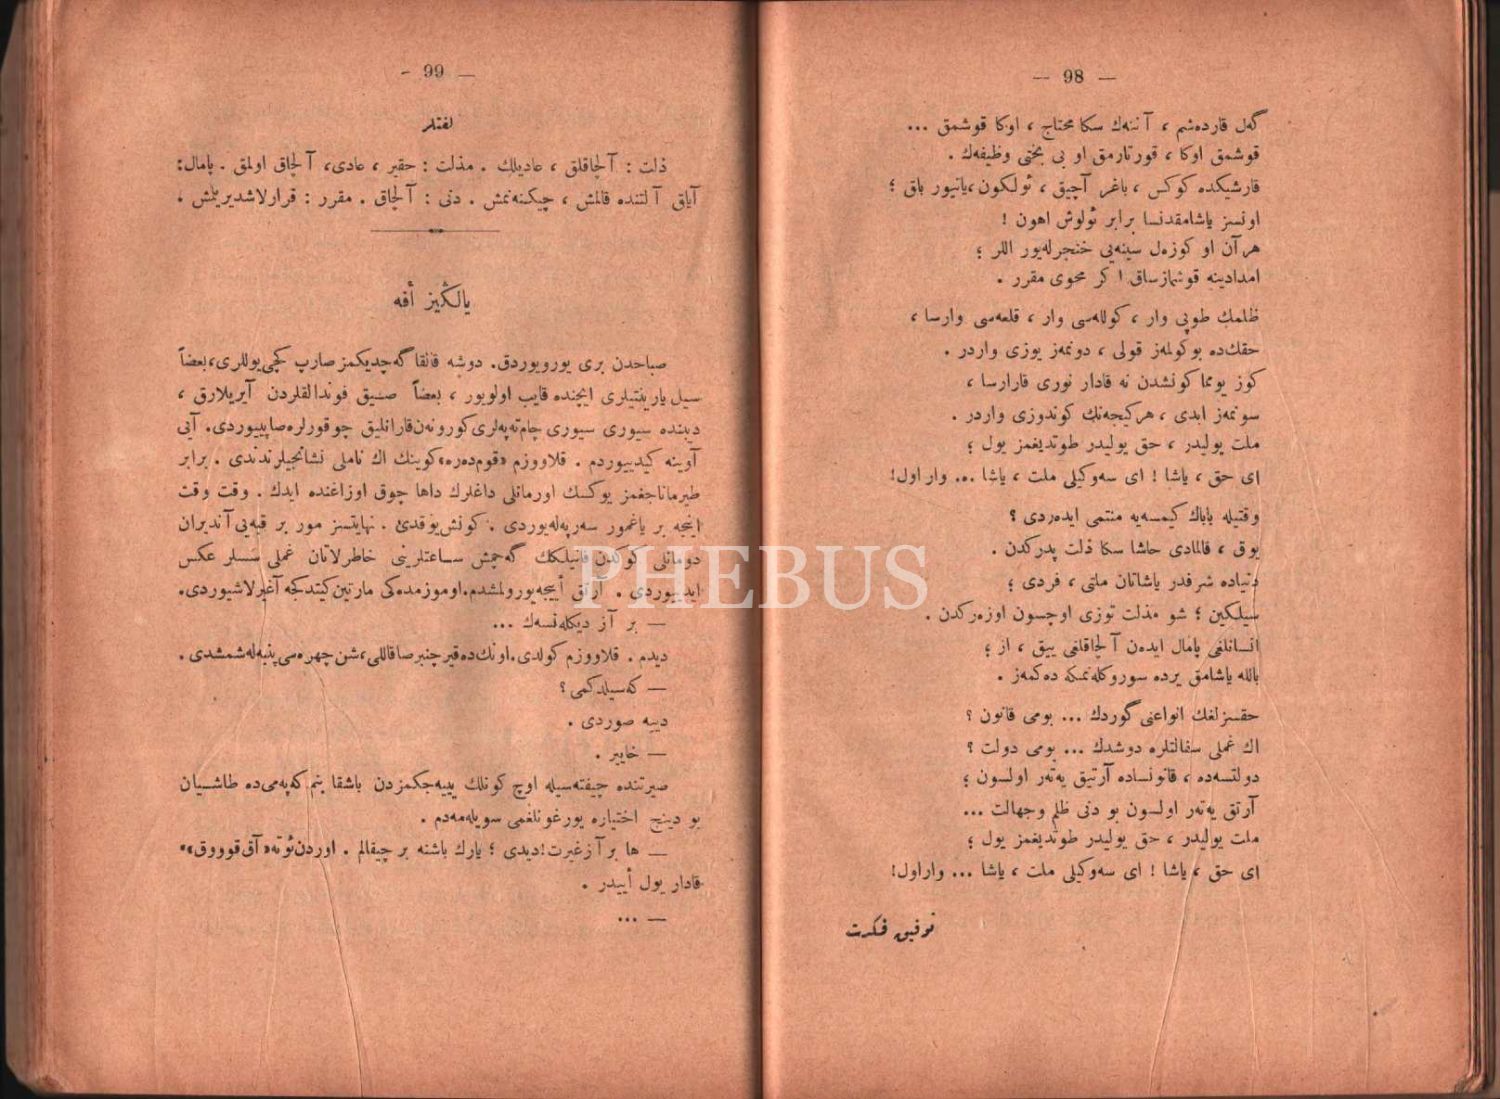 — 98 —
گه‌ل قارده‌شم ، آننه‌ك سكا محتاج ، اوكا قوشمق ...
قوشمق اوكا ، قورتارمق او بی بختی وظیفه‌ك .
قارشیكده كوكس ، باغر آچیق ، ئولكون ، یاتیور باق ؛
اونسز یاشامقدنسا برابر ئولوش اهون !
هر آن او كوزه‌ل سینه‌یی خنجرله‌یور اللر ؛
امدادینه قوشمازساق ا كر محوی مقرر .
ظلمك طوپی وار ، كولله‌سی وار ، قلعه‌سی وارسا ،
حقك‌ده بوكولمه‌ز قولی ، دونمه‌ز یوزی واردر .
كوز یومما كونشدن نه قادار نوری قارارسا ،
سونمه‌ز ابدی ، هر كیجه‌نك كوندوزی واردر .
ملت یولیدر ، حق یولیدر طوتدیغمز یول ؛
ای حق ، یاشا ! ای سه‌وكیلی ملت ، یاشا ... وار اول!
وقتیله باباك كیمسه‌یه منتمی ایده‌ردی ؟
یوق ، قالمادی حاشا سكا ذلت پدركدن .
دنیاده شرفدر یاشاتان ملتی ، فردی ؛
سیلكین ؛ شو مذلت توزی اوچسون اوزه‌ركدن .
انسانلغی پامال ایده‌ن آلچاقلغی ییق ، از ؛
بالله یاشامق یرده سوروكله‌نمكه ده‌كمه‌ز .
حقسزلغك انواعنی گوردك ... بومی قانون ؟
اك غملی سفالتلره دوشدك ... بومی دولت ؟
دولتسه‌ده ، قانونساده آرتیق یه‌ته‌ر اولسون ؛
آرتق یه‌ته‌ر اولسون بو دنی ظلم وجهالت ...
ملت یولیدر ، حق یولیدر طوتدیغمز یول ؛
ای حق ، یاشا ! ای سه‌وكیلی ملت ، یاشا ... واراول!
توفیق فكرت
— 99 -
لغتلر
ذلت : آلچاقلق ، عادیلك . مذلت : حقیر ، عادی، آلچاق اولمق . پامال:
آیاق آلتنده قالمش ، چیكنه‌نمش . دنی : آلچاق . مقرر : قرارلاشدیریلمش .
یالڭیز أفه
صباحدن بری یورویوردق. دوشه قالقا گه‌چدیكمز صارپ كچی یوللری ، بعضاً
سیل یارینتیلری ایچنده قایب اولویور ، بعضاً صیق فوندالقلردن آیریلارق ،
دیبنده سیوری سیوری چام‌ته‌په‌لری كورونه‌ن قارانلیق چوقورلره صاپییوردی. آیی
آوینه كیدییوردم . قلاووزم «قوم‌دره» كوینك اك ناملی نشانجیلرندندی . برابر
طیرماناجغمز یوكسك اورمانلی داغلرك داها چوق اوزاغنده ایدك . وقت وقت
اینجه بر یاغمور سه‌رپه‌له‌یوردی . كونش یوقدی . نهایتسز مور بر قبه‌یی آندیران
دومانلی كوكدن فانیلكك گه‌چمش ساعتلرینی خاطرلاتان غملی سسلر عكس
ایدییوردی . آرتق أییجه یورولمشدم. اوموزمده‌كی مارتین كیتدكجه آغیرلاشیوردی.
— بر آز دیكله‌نسه‌ك ...
دیدم . قلاووزم كولدی. اونك‌ده قیر چنبر صاقاللی ، شن چهره‌سی پنبه‌له‌شمشدی .
— كه‌سیلدكمی ؟
دییه صوردی .
— خاییر .
صیرتنده چیفته‌سیله اوچ كونلك یییه‌جكمزدن باشقا بنم كه‌په‌می‌ده طاشییان
بو دینج اختیاره یورغونلغمی سویله‌مه‌دم .
— ها بر آز غیرت! دیدی ؛ یارك باشنه بر چیقالم . اوردن ئوته «آق‌قوووق»
قادار یول أییدر .
— ...
PHEBUS